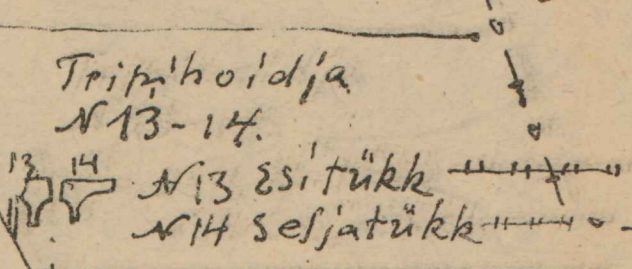 Teipihoidja
N 13-14.
13 14
N13 Esitükk
N14 Seljatükk